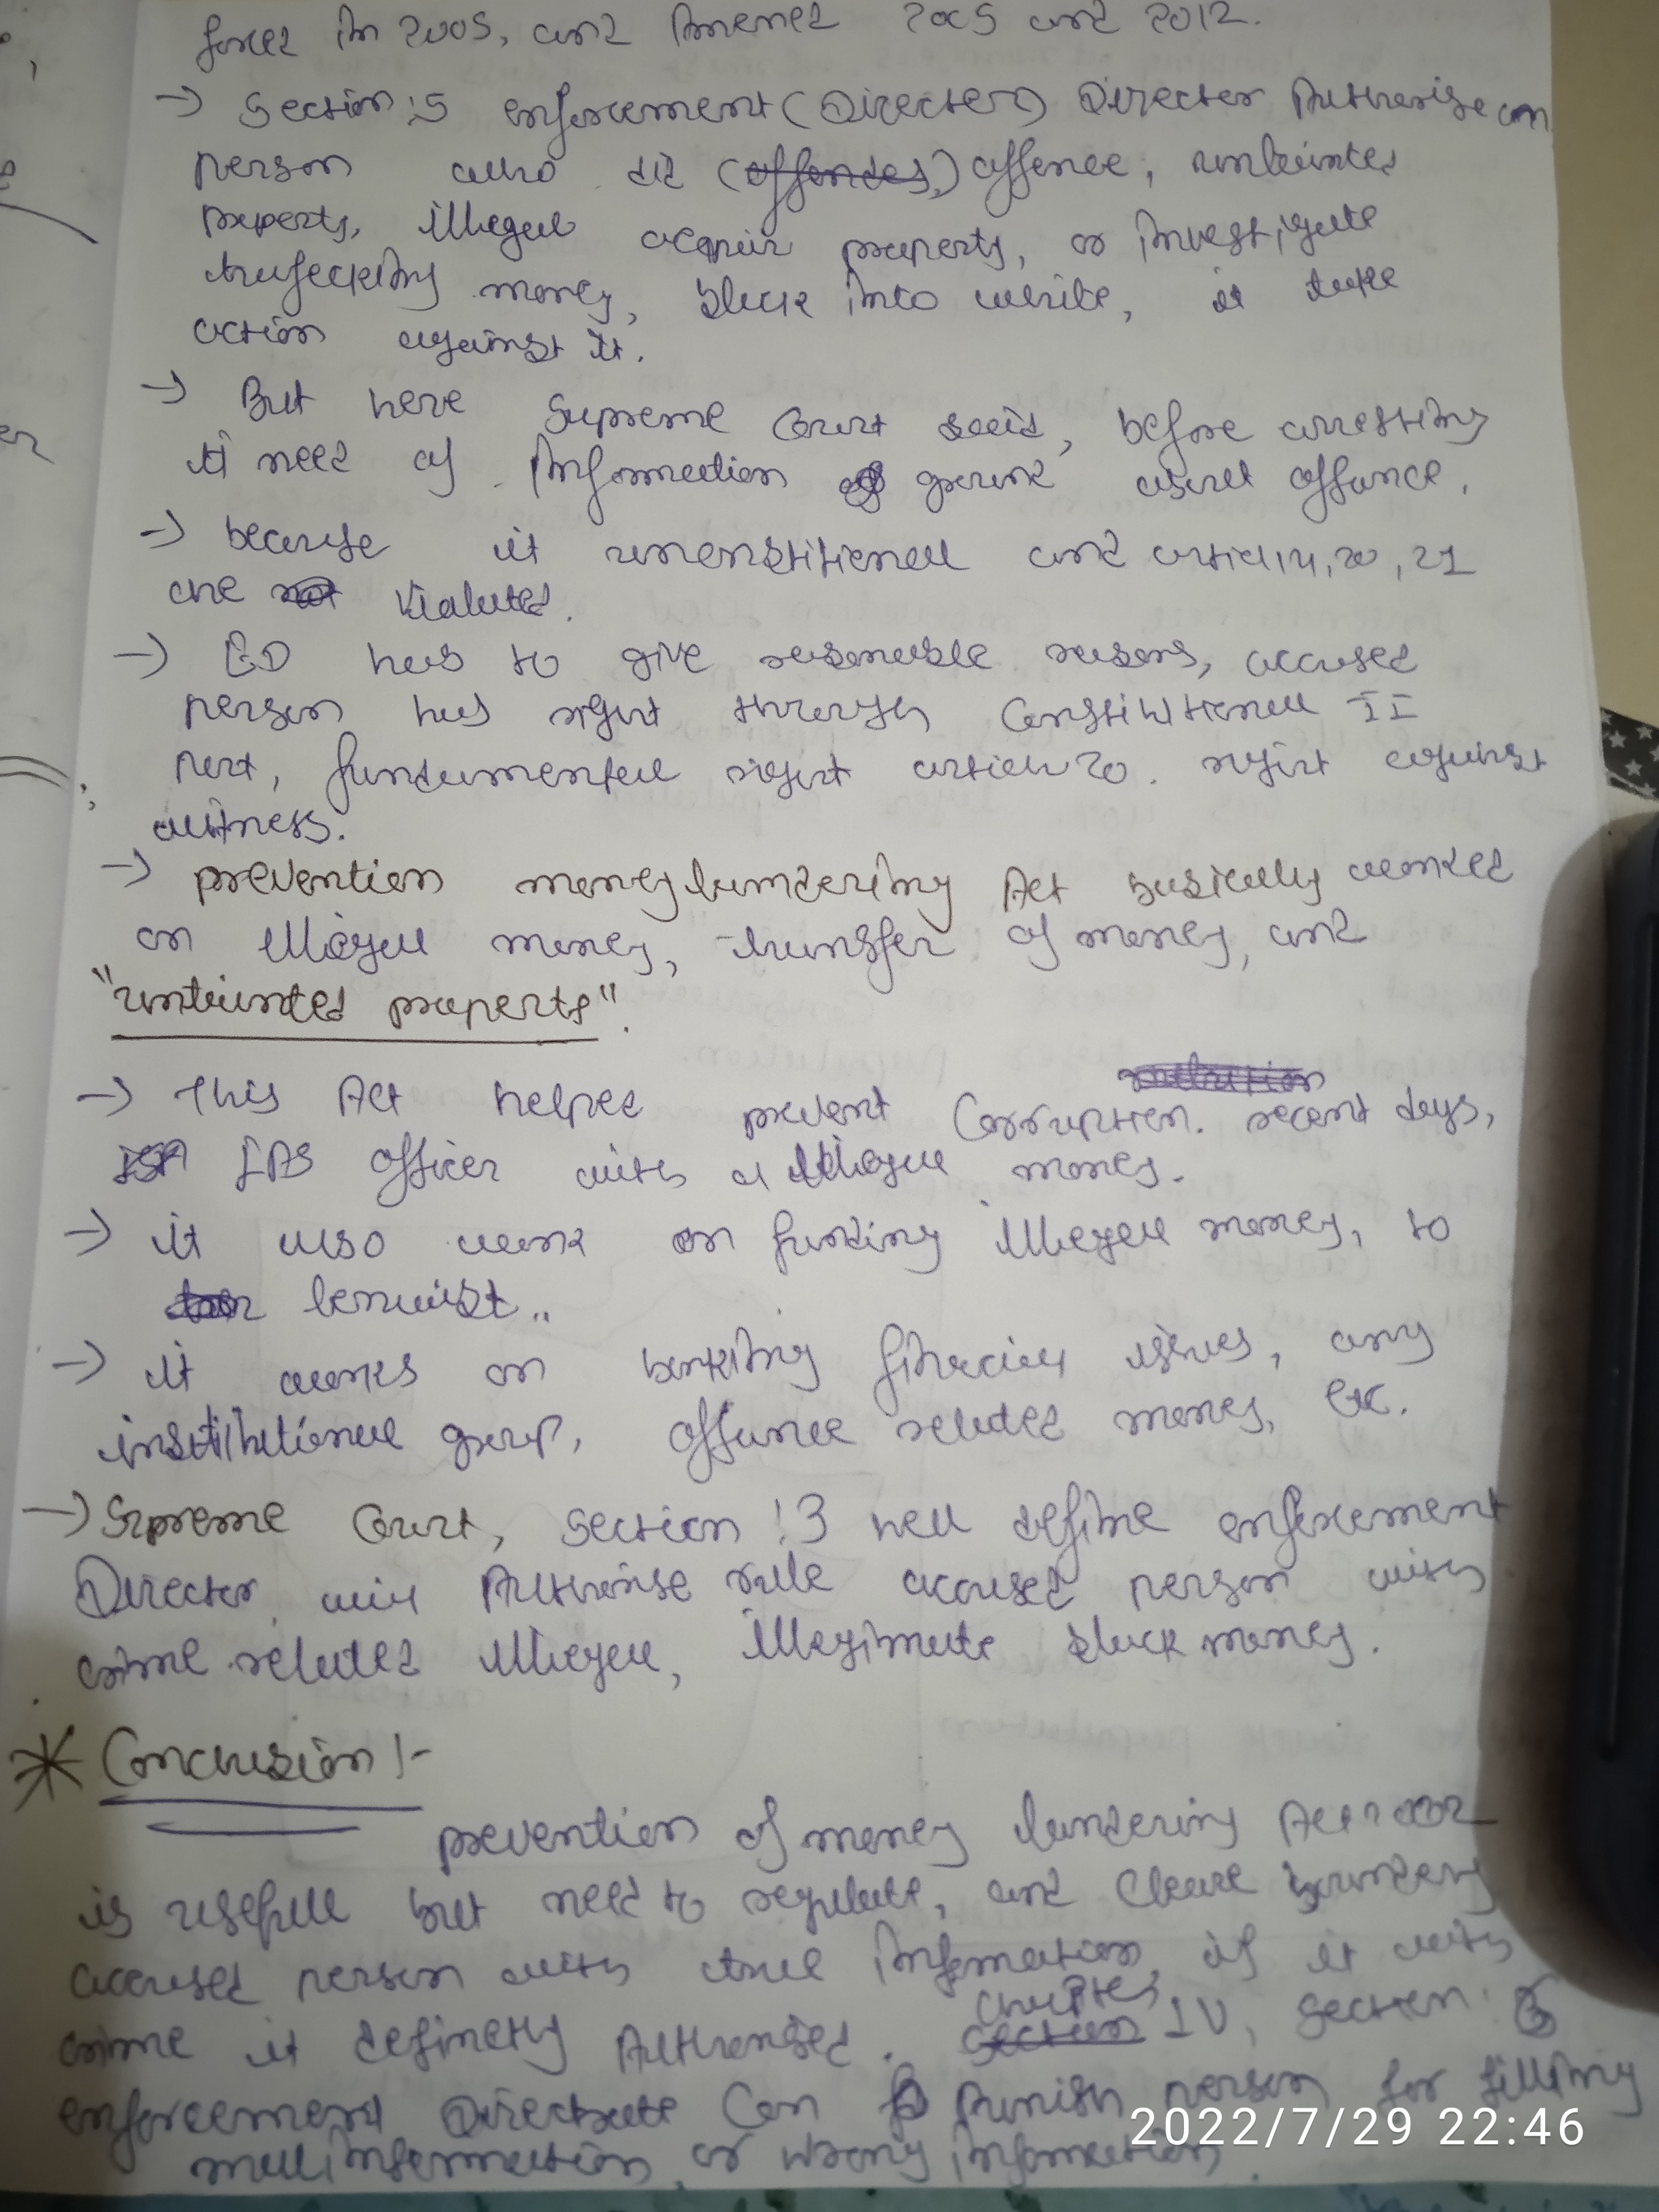 forced in 2005, and Amened 2005 and 2012.
→ Section:5 enforcement (Director) Director Authorise on
person who did (offendes,) offence, untainted
property, illegal acquir property, or investigate
trafecking money, black into white, it take
action against it.
→ But here Supreme Court said, before arresting
it need of Information of ground about offance.
→ because it unconstitionall and articl 14, 20, 21
are not Violated.
→ ED has to give resonable resons, accused
person has right through Constitutionall II
Part, fundamentall right articl 20. right against
witness.
→ prevention money laundering Act basically worked
on illegal money, transfer of money, and
"untainted property".
→ This Act helped prevent Corruption. recent days,
IAS officer with a illegal money.
→ it also work on funding illegal money, to
terrorist..
→ it works on banking finacial issues, any
institutional group, offance related money, etc.
→ Supreme Court, section :3 well define enforcement
Director, will Authorise rule accused person with
crime related illegal, illegimate black money.
* Conclusion :-
prevention of money laundering Act 2002
is usefull but need to regulate, and Cleare boundery
accused person with true information, if it with
crime it definetly Authorised. Chapter
section IV, section :
enforcement Directrate Can punish person for filling
mall information or wrong information.
2022/7/29 22:46